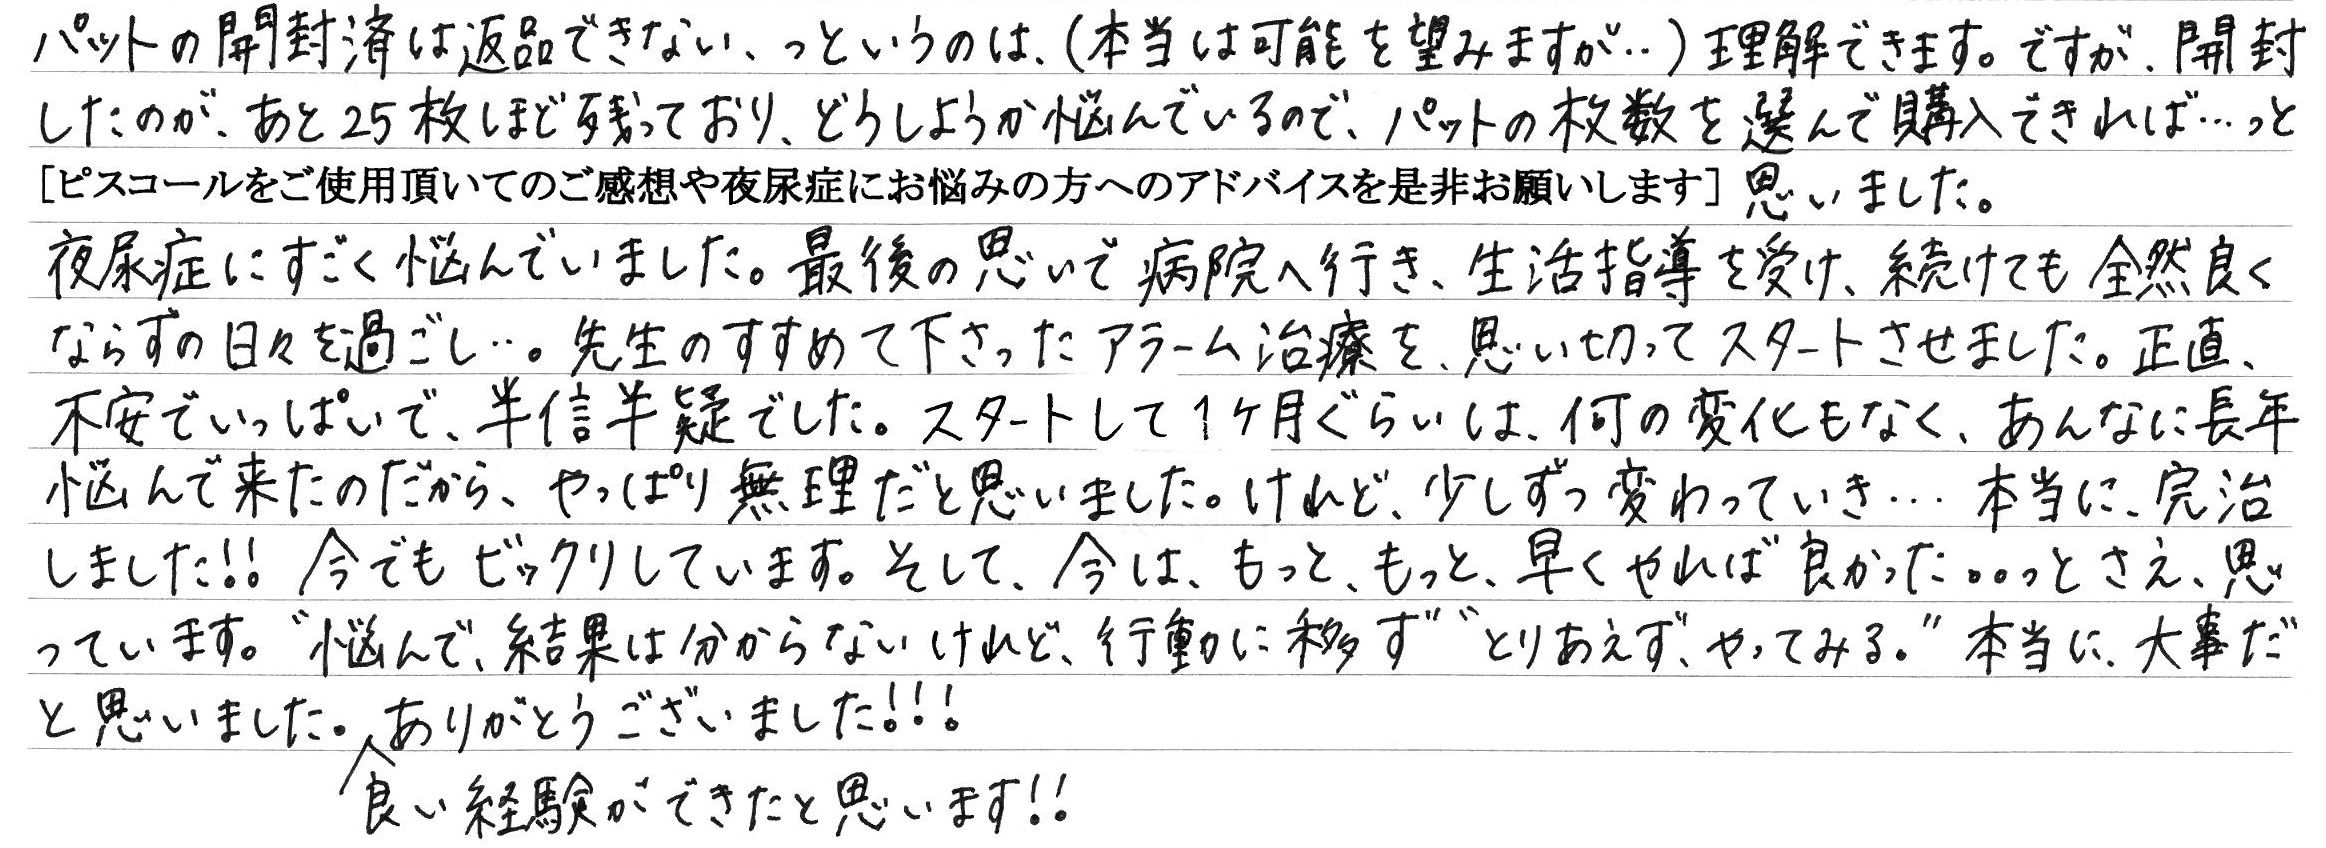 パットの開封済は返品できない、っというのは、(本当は可能を望みますが‥)理解できます。ですが、開封
したのが、あと25枚ほど残っており、どうしようか悩んでいるので、パットの枚数を選んで購入できれば…っと
[ピスコールをご使用頂いてのご感想や夜尿症にお悩みの方へのアドバイスを是非お願いします] 思いました。
夜尿症にすごく悩んでいました。最後の思いで病院へ行き、生活指導を受け、続けても全然良く
ならずの日々を過ごし‥。先生のすすめて下さったアラーム治療を、思い切ってスタートさせました。正直、
不安でいっぱいで、半信半疑でした。スタートして1ヶ月ぐらいは、何の変化もなく、あんなに長年
悩んで来たのだから、やっぱり無理だと思いました。けれど、少しずつ変わっていき… 本当に、完治
しました!! 今でもビックリしています。そして、今は、もっと、もっと、早くやれば良かった。。。っとさえ、思
っています。〝悩んで、結果は分からないけれど、行動に移す〞〝とりあえず、やってみる。〞本当に、大事だ
と思いました。ありがとうございました!!!
良い経験ができたと思います!!